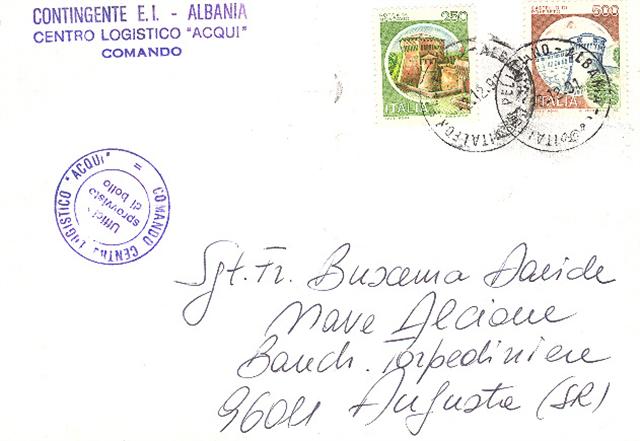 CONTINGENTE E.I. - ALBANIA
CENTRO LOGISTICO "ACQUI"
COMANDO
250
ITALIA
500
ITALIA
COMANDO CENTRO LOGISTICO "ACQUI" =
Uffici
sprovvisto
di bollo
Sgt. Fr. Buxema Davide
Nave Alcione
Banch. Torpediniere
96011 Augusta (SR)